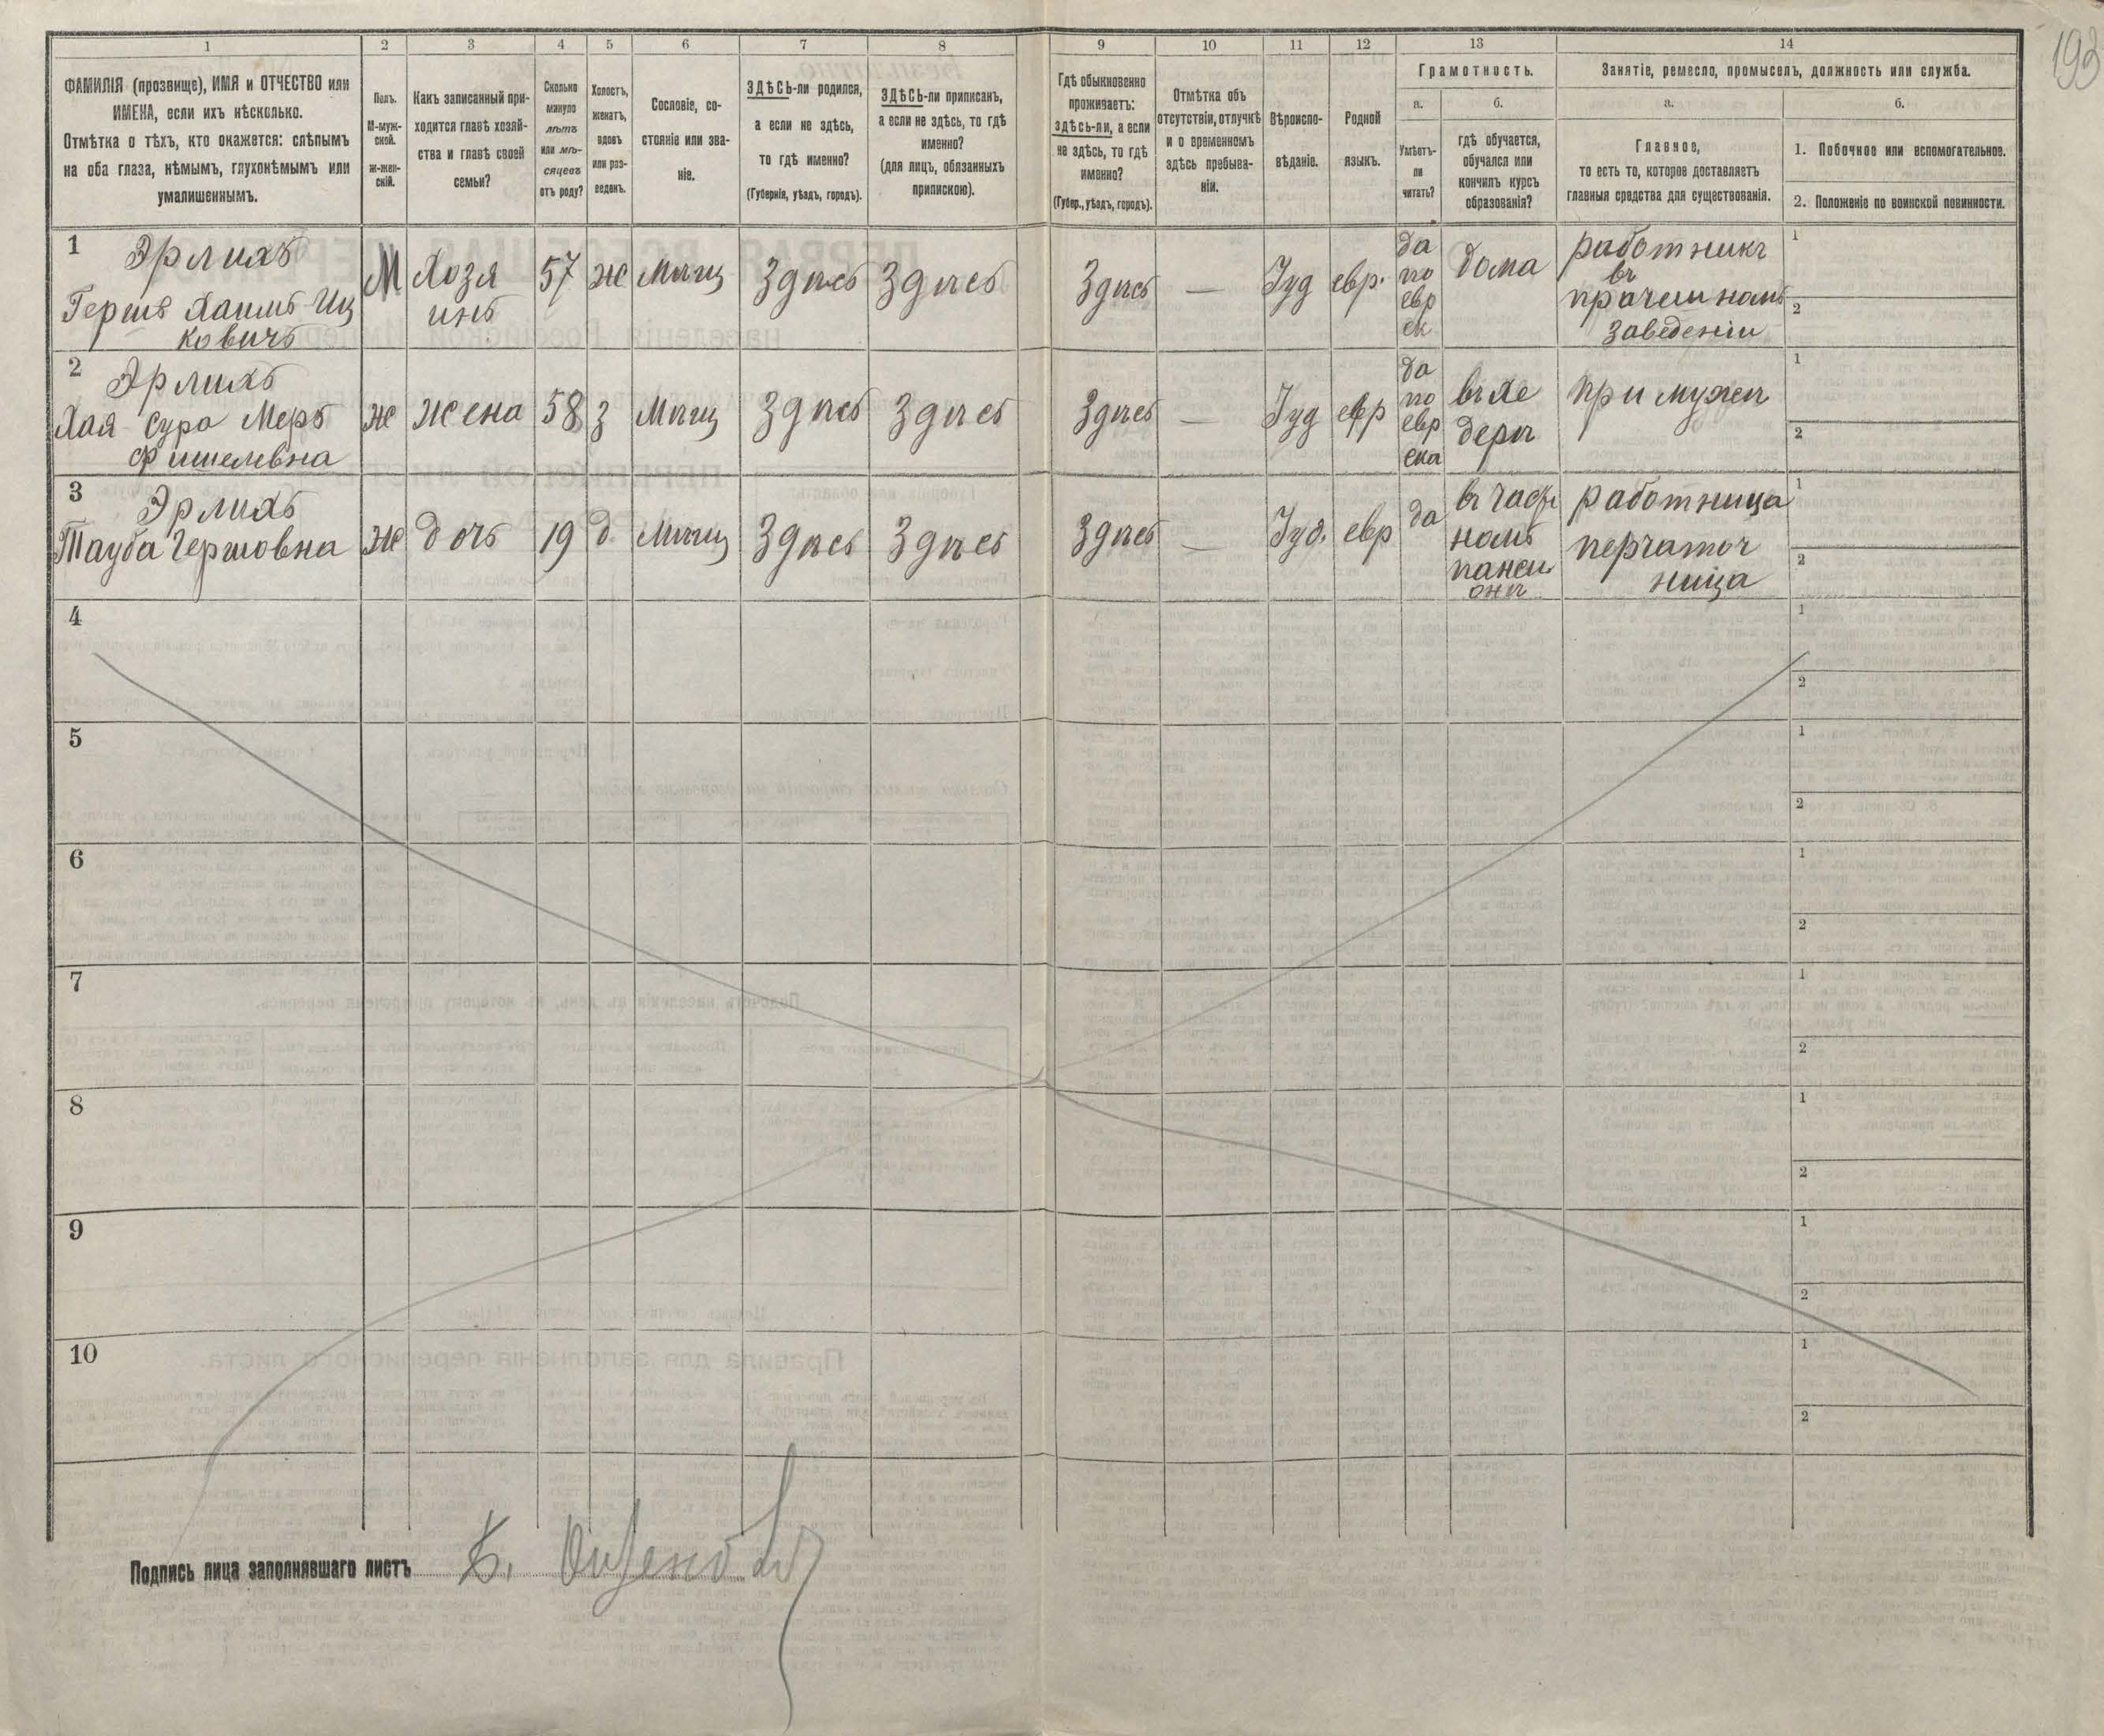 193
1 2 3 4 5 6 7 8 9 10 11 12 13 14
ФАМИЛІЯ (прозвище), ИМЯ и ОТЧЕСТВО или
ИМЕНА, если ихъ нѣсколько.
Отмѣтка о тѣхъ, кто окажется: слѣпымъ
на оба глаза, нѣмымъ, глухонѣмымъ или
умалишеннымъ.
Полъ.
М-муж-
ской.
Ж-жен-
скій.
Какъ записанный при-
ходится главѣ хозяй-
ства и главѣ своей
семьи?
Сколько
минуло
лѣтъ
или мѣ-
сяцевъ
отъ роду?
Холостъ,
женатъ,
вдовъ
или раз-
веденъ.
Сословіе, со-
стояніе или зва-
ніе.
ЗДѢСЬ-ли родился,
а если не здѣсь,
то гдѣ именно?
(Губернія, уѣздъ, городъ).
ЗДѢСЬ-ли приписанъ,
а если не здѣсь, то гдѣ
именно?
(для лицъ, обязанныхъ
припискою).
Гдѣ обыкновенно
проживаетъ:
здѣсь-ли, а если
не здѣсь, то гдѣ
именно?
(Губер., уѣздъ, городъ).
Отмѣтка объ
отсутствіи, отлучкѣ
и о временномъ
здѣсь пребыва-
ніи.
Вѣроиспо-
вѣданіе.
Родной
языкъ.
Грамотность.
а.
Умѣетъ-
ли
читать?
б.
гдѣ обучается,
обучался или
кончилъ курсъ
образованія?
Занятіе, ремесло, промыселъ, должность или служба.
а.
Главное,
то есть то, которое доставляетъ
главныя средства для существованія.
б.
1. Побочное или вспомогательное.
2. Положеніе по воинской повинности.
1
Эрлихъ
Гершъ Хаимъ Иц
ковичъ
М
Хозя
инъ
57
ж
Мѣщ
Здѣсь
Здѣсь
Здѣсь
—
Іуд
евр.
да
по
евр
ек
дома
работникъ
въ
прачешномъ
заведеніи
1
2
2
Эрлихъ
Хая Сура Меръ
Фишелевна
ж
жена
58
з
Мѣщ
Здѣсь
Здѣсь
Здѣсь
—
Іуд
евр
да
по
евр
ски
въ хе
дерѣ
при мужѣ
1
2
3
Эрлихъ
Тауба Гершовна
ж
дочь
19
д
Мѣщ
Здѣсь
Здѣсь
Здѣсь
—
Іуд.
евр
да
въ част
номъ
панси
онѣ
работница
перчаточ
ница
1
2
4
1
2
5
1
2
6
1
2
7
1
2
8
1
2
9
1
2
10
1
2
Подпись лица заполнявшаго листъ